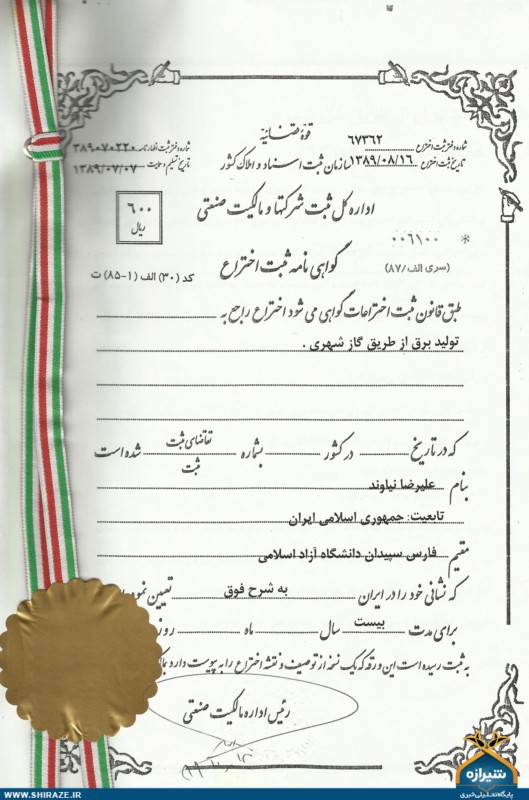 قوه قضائیه
شماره دفتر ثبت اختراع ۶۷۳۶۲
تاریخ ثبت اختراع ۱۳۸۹/۰۸/۱۶
سازمان ثبت اسناد و املاک کشور
شماره دفتر ثبت اظهارنامه ۳۸۹۰۷۰۲۲۰
تاریخ تسلیم ۱۳۸۹/۰۷/۰۷
اداره کل ثبت شرکتها و مالکیت صنعتی
۶۰۰
ریال
* ۰۰۶۱۰۰
(سری الف/۸۷)
گواهی نامه ثبت اختراع
کد (۳۰) الف (۱-۸۵) ت
طبق قانون ثبت اختراعات گواهی می شود اختراع راجع به
تولید برق از طریق گاز شهری .
که در تاریخ در کشور بشماره تقاضای ثبت شده است
ثبت
بنام علیرضا نیاوند
تابعیت: جمهوری اسلامی ایران
مقیم فارس سپیدان دانشگاه آزاد اسلامی
که نشانی خود را در ایران به شرح فوق تعیین نمود
برای مدت بیست سال ماه روز
به ثبت رسیده است این ورقه که یک نسخه از توصیف و نقشه اختراع را به پیوست دارد
رئیس اداره مالکیت صنعتی
شیرازه
پایگاه تحلیلی خبری
WWW.SHIRAZE.IR
WWW.SHIRAZE.IR